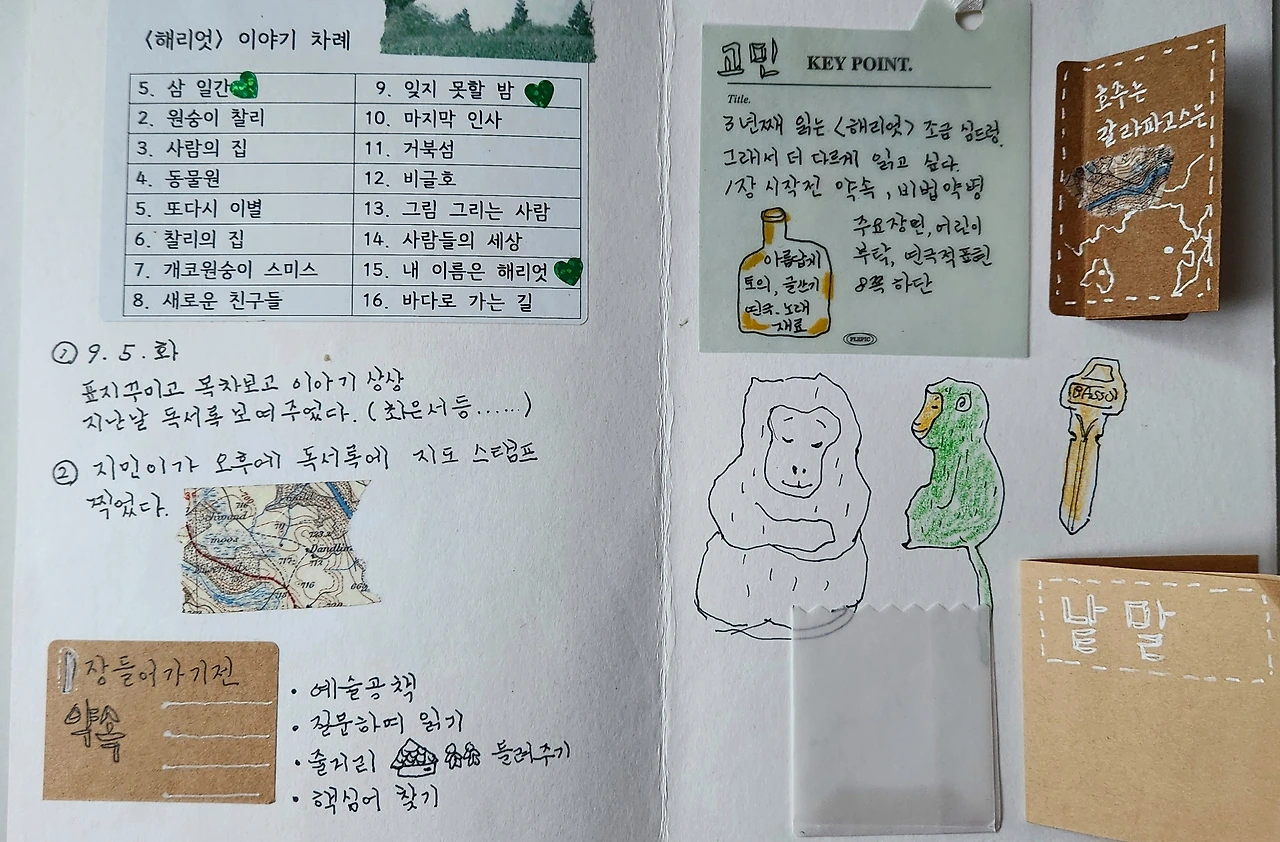 <해리엇> 이야기 차례
5. 삼 일간
2. 원숭이 찰리
3. 사람의 집
4. 동물원
5. 또다시 이별
6. 찰리의 집
7. 개코원숭이 스미스
8. 새로운 친구들
9. 잊지 못할 밤
10. 마지막 인사
11. 거북섬
12. 비글호
13. 그림 그리는 사람
14. 사람들의 세상
15. 내 이름은 해리엇
16. 바다로 가는 길
① 9. 5. 화
표지꾸미고 목차보고 이야기 상상
지난날 독서록 보여주었다. (최은서등......)
② 지민이가 오후에 독서록에 지도 스탬프
찍었다.
moos
Dandlun
716
1장들어가기전
약속
• 예술공책
• 질문하며 읽기
• 줄거리 들려주기
• 핵심어 찾기
고민 KEY POINT.
Title.
3년째 읽는 <해리엇> 조금 심드렁.
그래서 더 다르게 읽고 싶다.
1장 시작전 약속, 비법약병
주요장면, 어린이
부탁, 연극적표현
8쪽 하단
아름답게
토의, 글쓰기
연극. 노래
재료
PLEPIC
호주는
갈라파고스는
BASSO
낱말